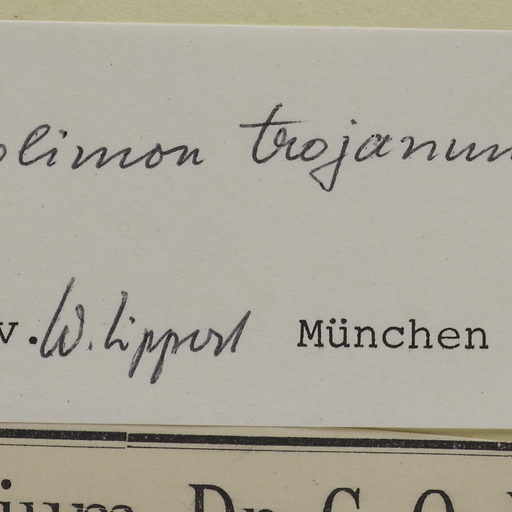 olimon trojanum
v. W. Lippert München
ium Dr. C. O.